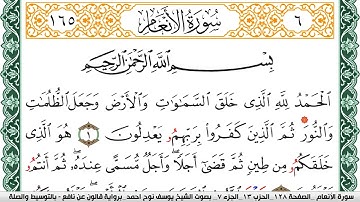 ٦ سُورَةُ الأَنْعَامِ ١٦٥
بِسْمِ اللَّهِ الرَّحْمَٰنِ الرَّحِيمِ
الْحَمْدُ لِلَّهِ الَّذِي خَلَقَ السَّمَٰوَٰتِ وَالْأَرْضَ وَجَعَلَ الظُّلُمَٰتِ
وَالنُّورَ ثُمَّ الَّذِينَ كَفَرُوا بِرَبِّهِمُۥ يَعْدِلُونَ ١ هُوَ الَّذِي
خَلَقَكُم مِّن طِينٍ ثُمَّ قَضَىٰ أَجَلًا وَأَجَلٌ مُّسَمًّى عِندَهُۥ ثُمَّ أَنتُمُۥ
سورة الأنعام _ الصفحة ١٢٨ _ الحزب ١٣ _ الجزء ٧ _ بصوت الشيخ يوسف نوح أحمد _ برواية قالون عن نافع - بالتوسيط والصلة